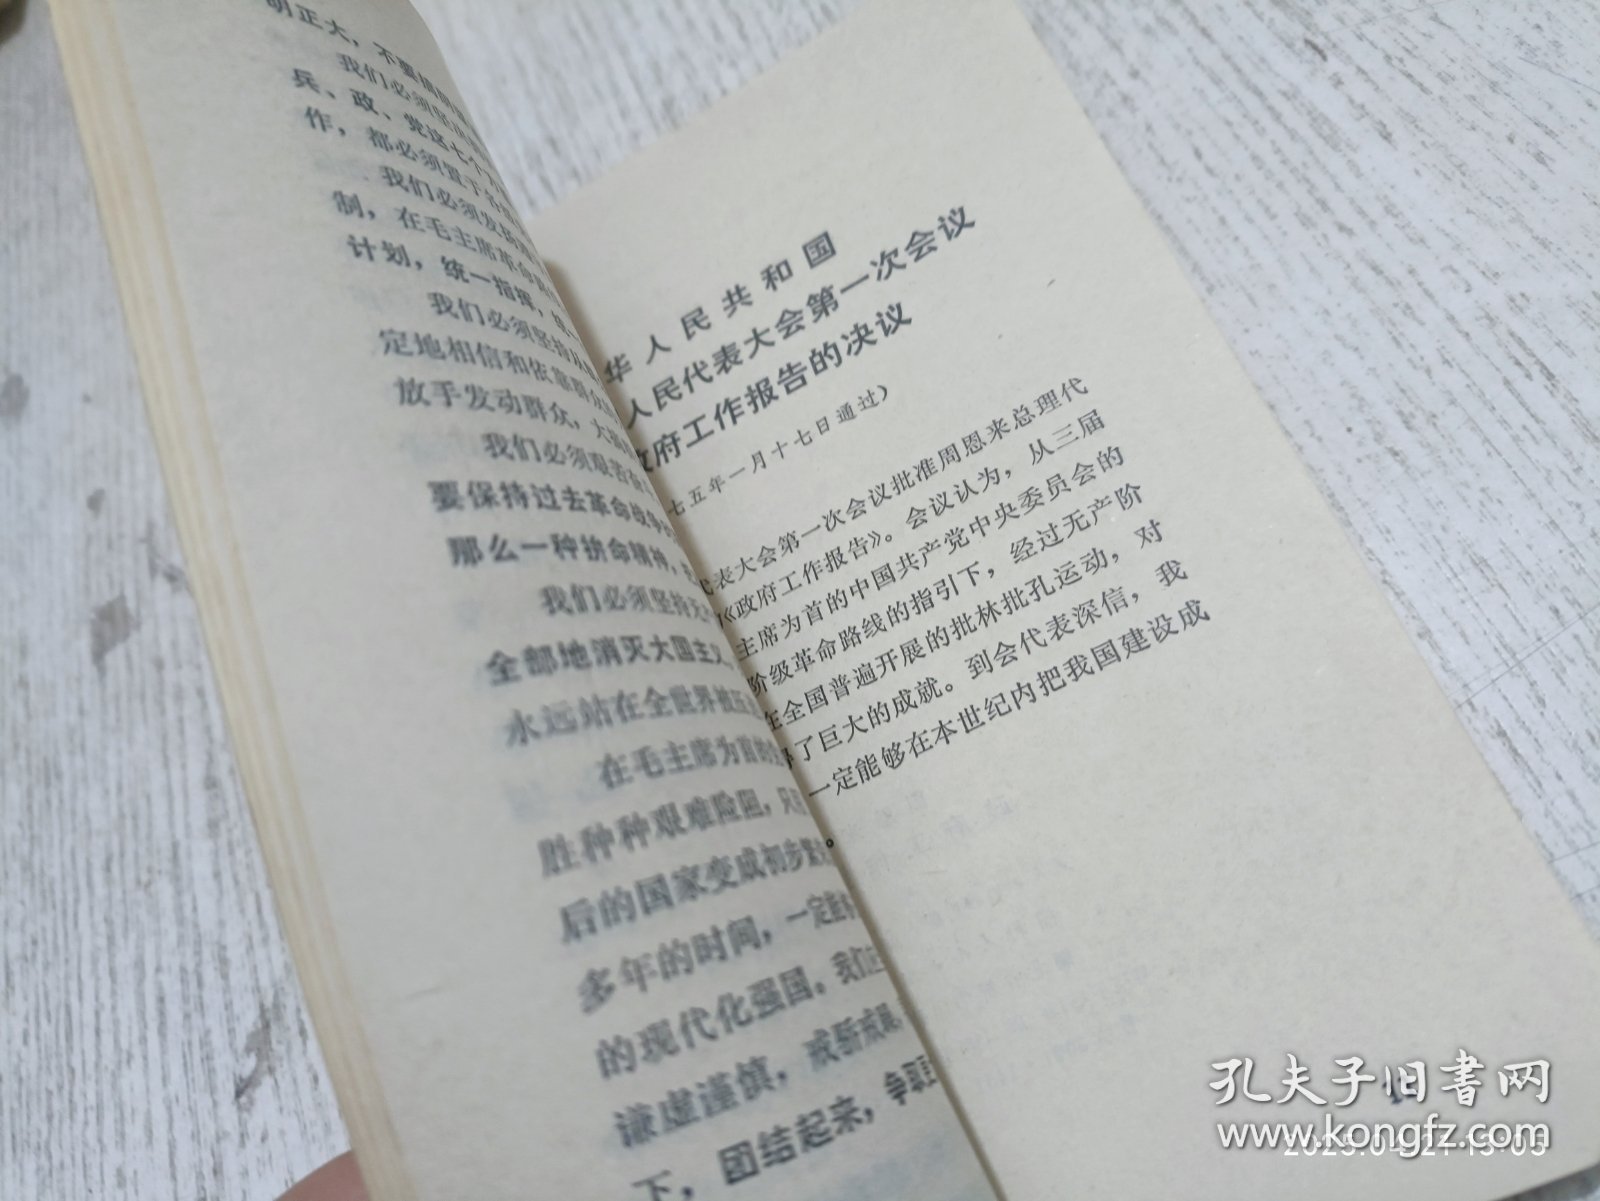 明正大，不要搞阴谋
我们必须坚决
兵、政、党这七个方
作，都必须置于
我们必须发扬
制，在毛主席革命路
计划，统一指挥，
我们必须坚持
定地相信和依靠群众
放手发动群众，大
我们必须艰苦
要保持过去革命战争
那么一种拚命精神，
我们必须坚持无
全部地消灭大国主义，
永远站在全世界被压
在毛主席为首的
胜种种艰难险阻，只
后的国家变成初步繁
多年的时间，一定能
的现代化强国。我们
谦虚谨慎，戒骄戒躁，
下，团结起来，争取
华人民共和国
人民代表大会第一次会议
政府工作报告的决议
七五年一月十七日通过）
代表大会第一次会议批准周恩来总理代
《政府工作报告》。会议认为，从三届
主席为首的中国共产党中央委员会的
阶级革命路线的指引下，经过无产阶
在全国普遍开展的批林批孔运动，对
了巨大的成就。到会代表深信，我
一定能够在本世纪内把我国建设成
。
孔夫子旧書网
www.kongfz.com
2025.04.21 13:05